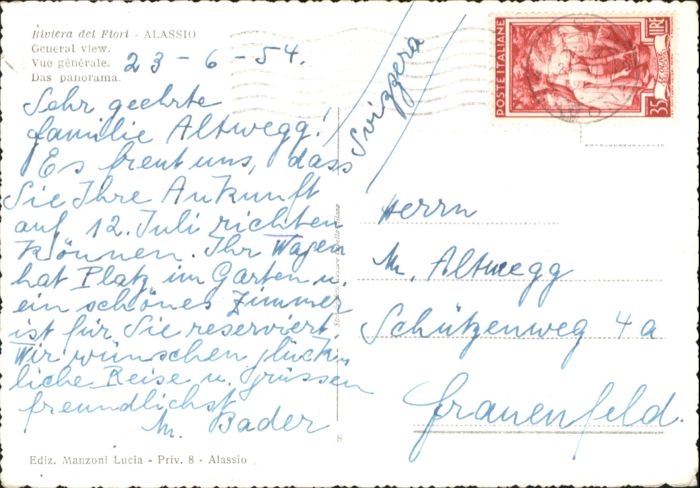 Riviera dei Fiori - ALASSIO
General view.
Vue générale.
Das panorama.
23-6-54.
Sehr geehrte
familie Altwegg!
Es freut uns, dass
Sie Ihre Ankunft
auf 12. Juli richten
können. Ihr Wagen
hat Platz im Garten u.
ein schönes Zimmer
ist für Sie reserviert.
Wir wünschen glück-
liche Reise u. grüssen
freundlichst
M. Bader
8
Ediz. Manzoni Lucia - Priv. 8 - Alassio
Svizzera
POSTE ITALIANE
LIRE
35
Herrn
M. Altwegg
Schützenweg 4a
Frauenfeld.